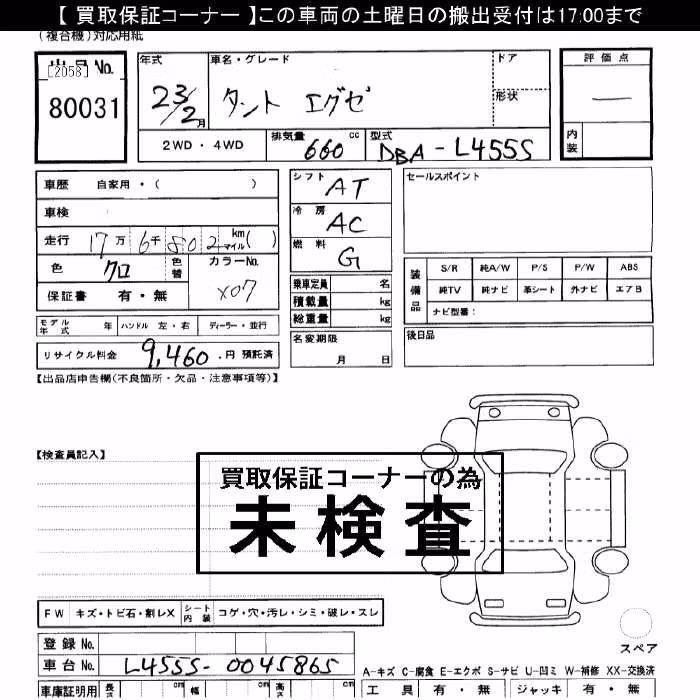 【 買取保証コーナー 】この車両の土曜日の搬出受付は17:00まで
(複合機)対応用紙
出品No.
[2058]
80031
年式
23/2月
車名・グレード
タント エグゼ
ドア
形状
評価点
—
内装
2WD ・ 4WD
排気量 660 cc
型式 DBA-L455S
車歴 自家用・( )
車検
走行 17万 6千 802 km マイル ( )
色 クロ
色替
カラーNo. X07
保証書 有・無
シフト AT
冷房 AC
燃料 G
乗車定員 名
積載量 kg
総重量 kg
セールスポイント
装備品
S/R 純A/W P/S P/W ABS
純TV 純ナビ 革シート 外ナビ エアB
ナビ型番:
モデル年式 年 ハンドル 左・右 ディーラー・並行
リサイクル料金 9,460 円 預託済
名変期限
月 日
後日品
【出品店申告欄(不良箇所・欠品・注意事項等)】
【検査員記入】
買取保証コーナーの為
未検査
FW キズ・トビ石・割レX シート内装 コゲ・穴・汚レ・シミ・破レ・スレ
スペア
登録No.
車台No. L455S-0045865
A-キズ C-腐食 E-エクボ S-サビ U-凹ミ W-補修 XX-交換済
車庫証明用 長さ cm 幅 cm 高さ cm
工具 有・無 ジャッキ 有・無